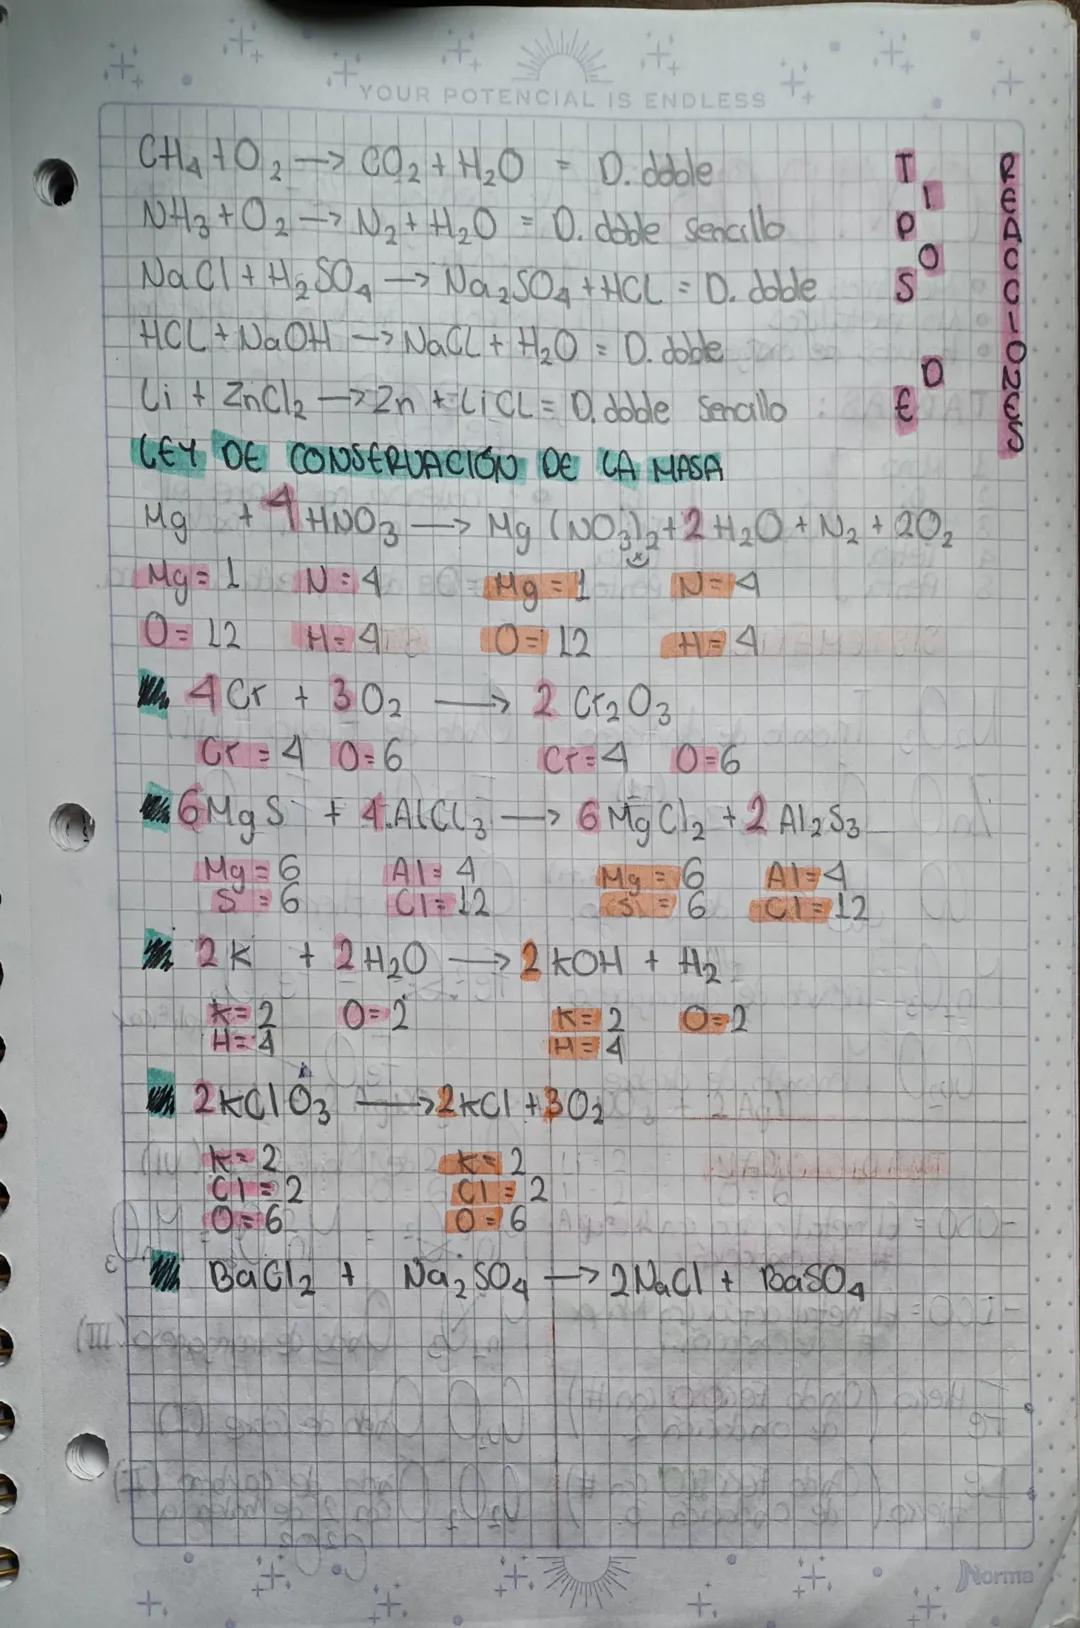 YOUR POTENCIAL IS ENDLESS
TIPOS DE REACCIONES
CH4 + O2 → CO2 + H2O = D. doble
NH3 + O2 → N2 + H2O = D. doble sencillo
NaCl + H2SO4 → Na2SO4 + HCL = D. doble
HCL + NaOH → NaCL + H2O = D. doble
Li + ZnCl2 → Zn + LiCL = D. doble sencillo
LEY DE CONSERVACIÓN DE LA MASA
Mg + 4 HNO3 → Mg (NO3)2 + 2 H2O + N2 + 2O2
Mg = 1 N = 4 Mg = 1 N = 4
O = 12 H = 4 O = 12 H = 4
4 Cr + 3 O2 → 2 Cr2O3
Cr = 4 O = 6 Cr = 4 O = 6
6 MgS + 4 AlCl3 → 6 MgCl2 + 2 Al2S3
Mg = 6 Al = 4 Mg = 6 Al = 4
S = 6 Cl = 12 S = 6 Cl = 12
2 K + 2 H2O → 2 KOH + H2
K = 2 O = 2 K = 2 O = 2
H = 4 H = 4
2 KClO3 → 2 KCl + 3 O2
K = 2 K = 2
Cl = 2 Cl = 2
O = 6 O = 6
BaCl2 + Na2SO4 → 2NaCl + BaSO4
Norma